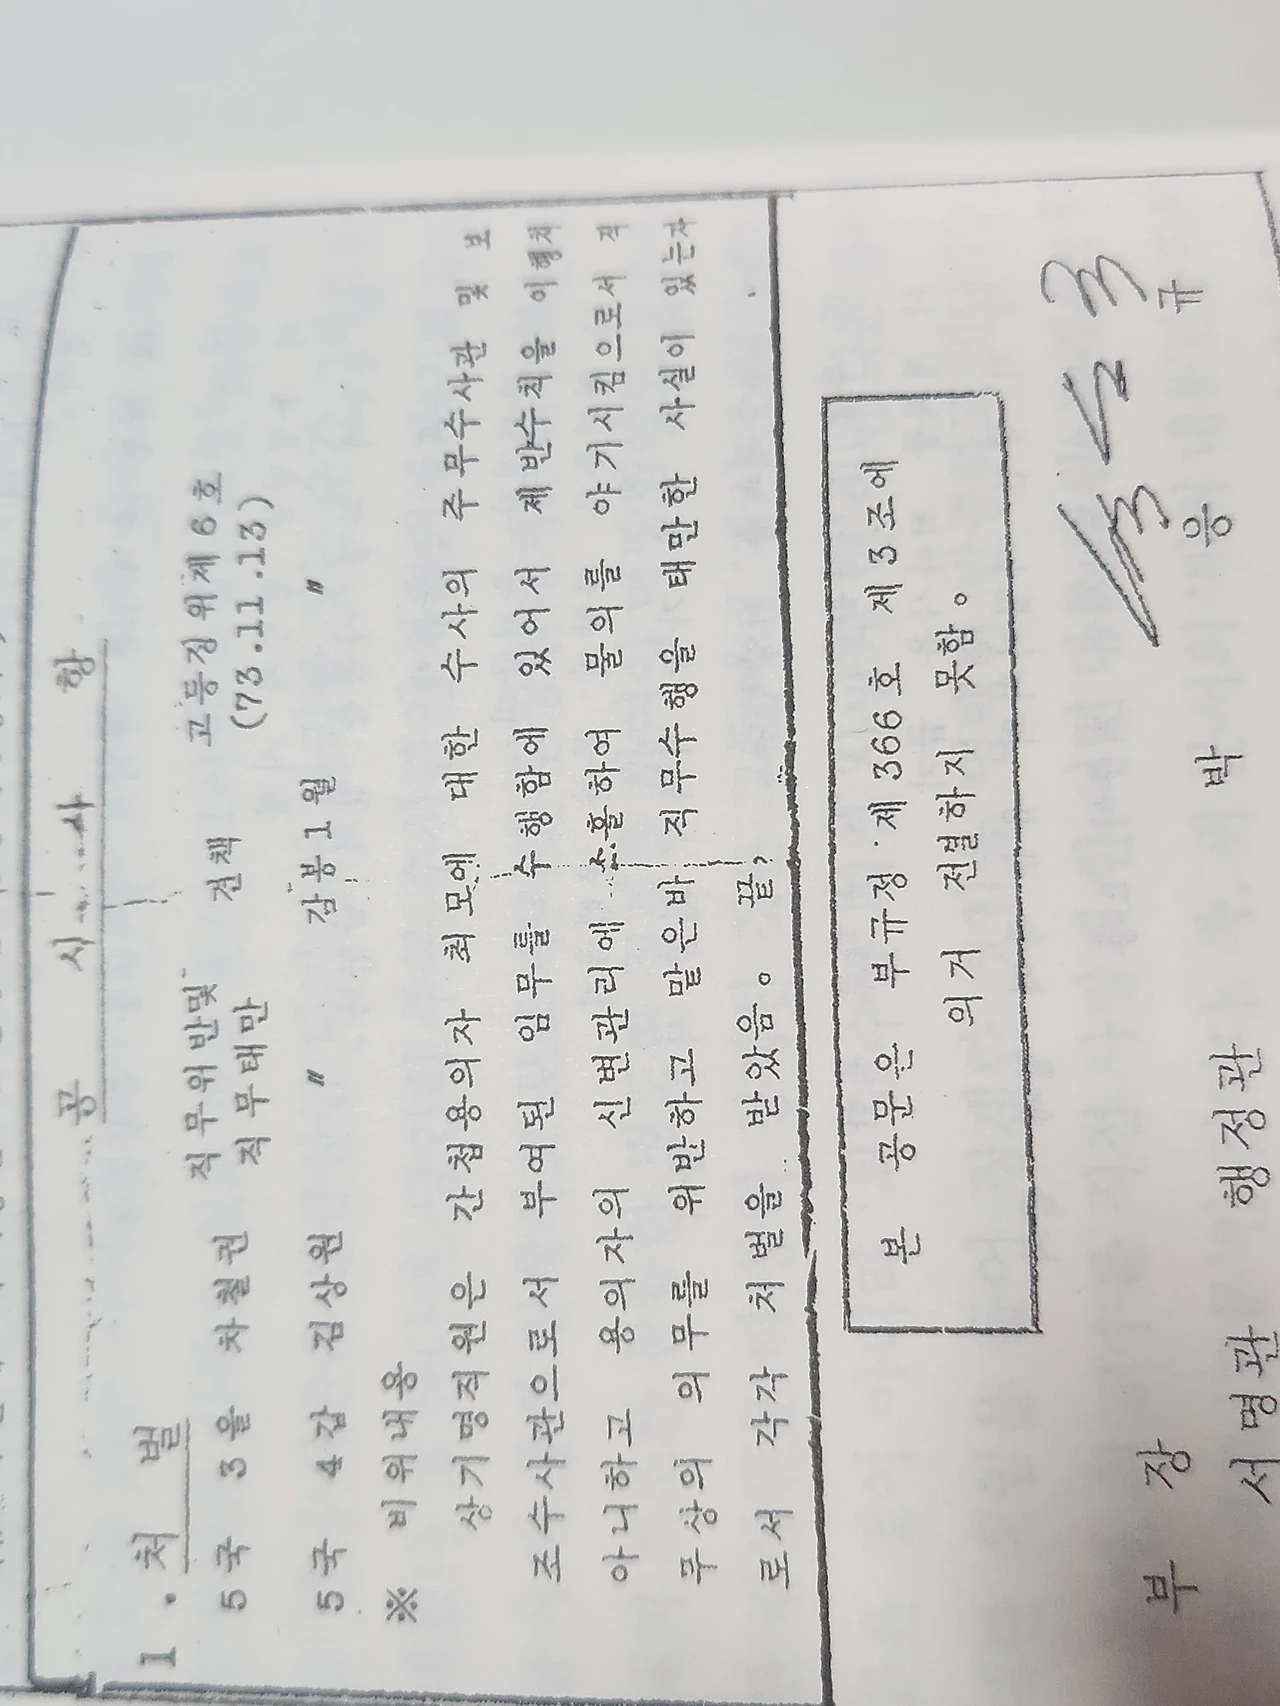 공 시 사 항
1. 처 벌
5국 3을 차철권 직무위반및 견책 고등징위제6호
직무태만 (73.11.13)
5국 4갑 김상원 〃 감봉1월 〃
※ 비위내용
상기명직원은 간첩용의자 최모에 대한 수사의 주무수사관 및 보
조수사관으로서 부여된 임무를 수행함에 있어서 제반수칙을 이행치
아니하고 용의자의 신변관리에 소홀하여 물의를 야기시킴으로서 직
무상의 의무를 위반하고 맡은바 직무수행을 태만한 사실이 있는자
로서 각각 처벌을 받았음。 끝,
본 공문은 부규정 제366호 제3조에
의거 전결하지 못함。
부 장
서명관 행정관 박 응 규